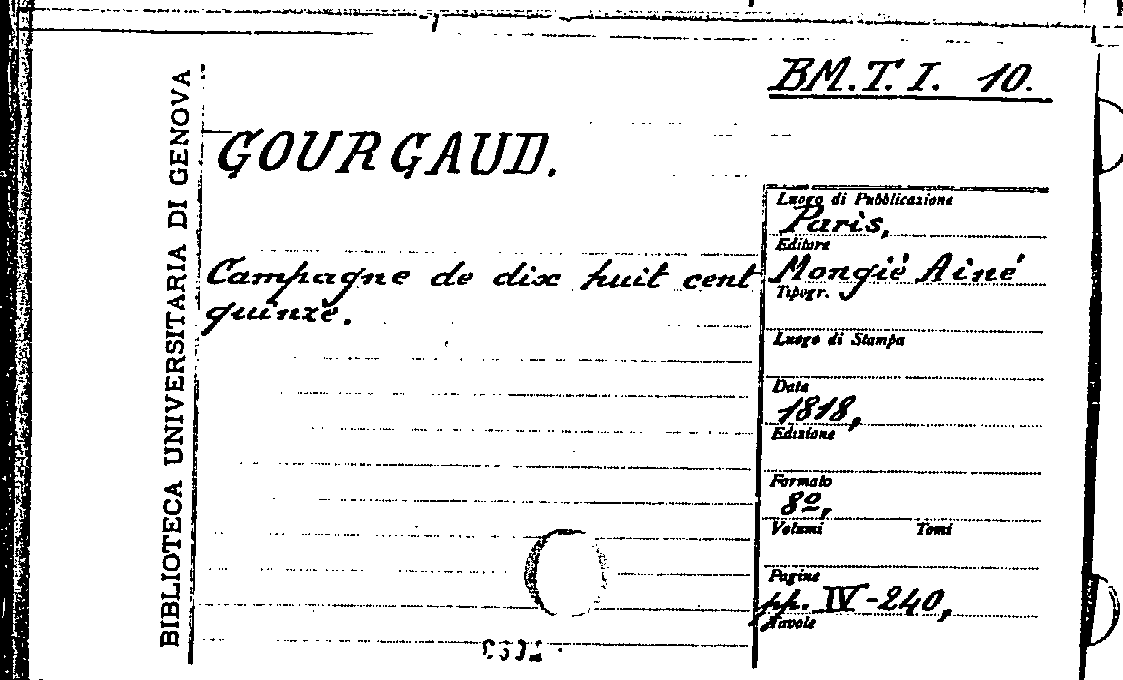 BM. T. I. 10.
BIBLIOTECA UNIVERSITARIA DI GENOVA
GOURGAUD.
Campagne de dix huit cent
quinze.
Luogo di Pubblicazione
Paris,
Editore
Mongié Ainé
Tipogr.
Luogo di Stampa
Data
1818,
Edizione
Formato
8º,
Volumi Tomi
Pagine
pp. IV-240,
Tavole